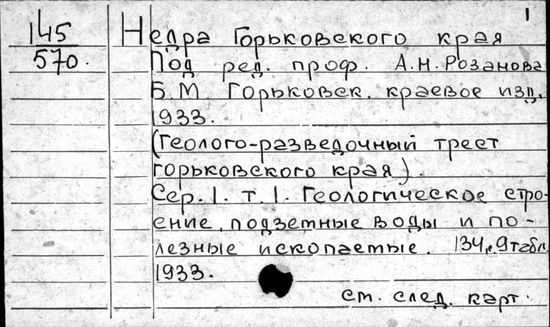 1
145
570.
Недра Горьковского края
Под ред. проф. А.Н.Розанова
Б.М. Горьковск. краевое изд.
1933.
(Геолого-разведочный трест
горьковского края).
Сер. 1. т. 1. Геологическое стро-
ение, подземные воды и по-
лезные ископаемые. 134с. 9табл.
1933.
см. след. карт.